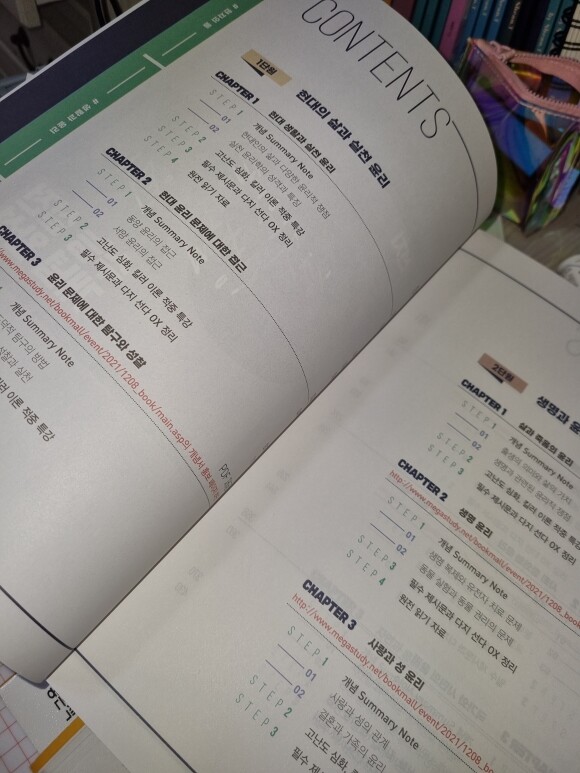 CONTENTS
1단원
현대의 삶과 실천 윤리
CHAPTER 1
현대 생활과 실천 윤리
STEP 1
개념 Summary Note
01
현대인의 삶과 다양한 윤리적 쟁점
02
실천 윤리학의 성격과 특징
STEP 2
고난도 심화, 킬러 이론 적중 특강
STEP 3
필수 제시문과 다지 선다 OX 정리
STEP 4
원전 읽기 자료
CHAPTER 2
현대 윤리 문제에 대한 접근
STEP 1
개념 Summary Note
01
동양 윤리의 접근
02
서양 윤리의 접근
STEP 2
고난도 심화, 킬러 이론 적중 특강
STEP 3
필수 제시문과 다지 선다 OX 정리
CHAPTER 3
윤리 문제에 대한 탐구와 성찰
www.megastudy.net/bookmall/event/2021/1208_book/main.asp의
개념 Summary Note
도덕적 탐구의 방법
성찰과 실천
킬러 이론 적중 특강
2단원
생명과
CHAPTER 1
삶과 죽음의 윤리
STEP 1
개념 Summary Note
01
출생의 의미와 삶의 가치
02
생명과 관련된 윤리적 쟁점
STEP 2
고난도 심화, 킬러 이론 적중 특강
STEP 3
필수 제시문과 다지 선다 OX 정리
CHAPTER 2
생명 윤리
http://www.megastudy.net/bookmall/event/2021/1208_boo
STEP 1
개념 Summary Note
01
생명 복제와 유전자 치료 문제
02
동물 실험과 동물 권리의 문제
STEP 3
필수 제시문과 다지 선다 OX 정리
STEP 4
원전 읽기 자료
CHAPTER 3
사랑과 성 윤리
http://www.megastudy.net/bookmall/event/2021/1208_b
STEP 1
개념 Summary Note
01
사랑과 성의 관계
02
결혼과 가족의 윤리
STEP 2
고난도 심화,
STEP 3
필수 제시문과